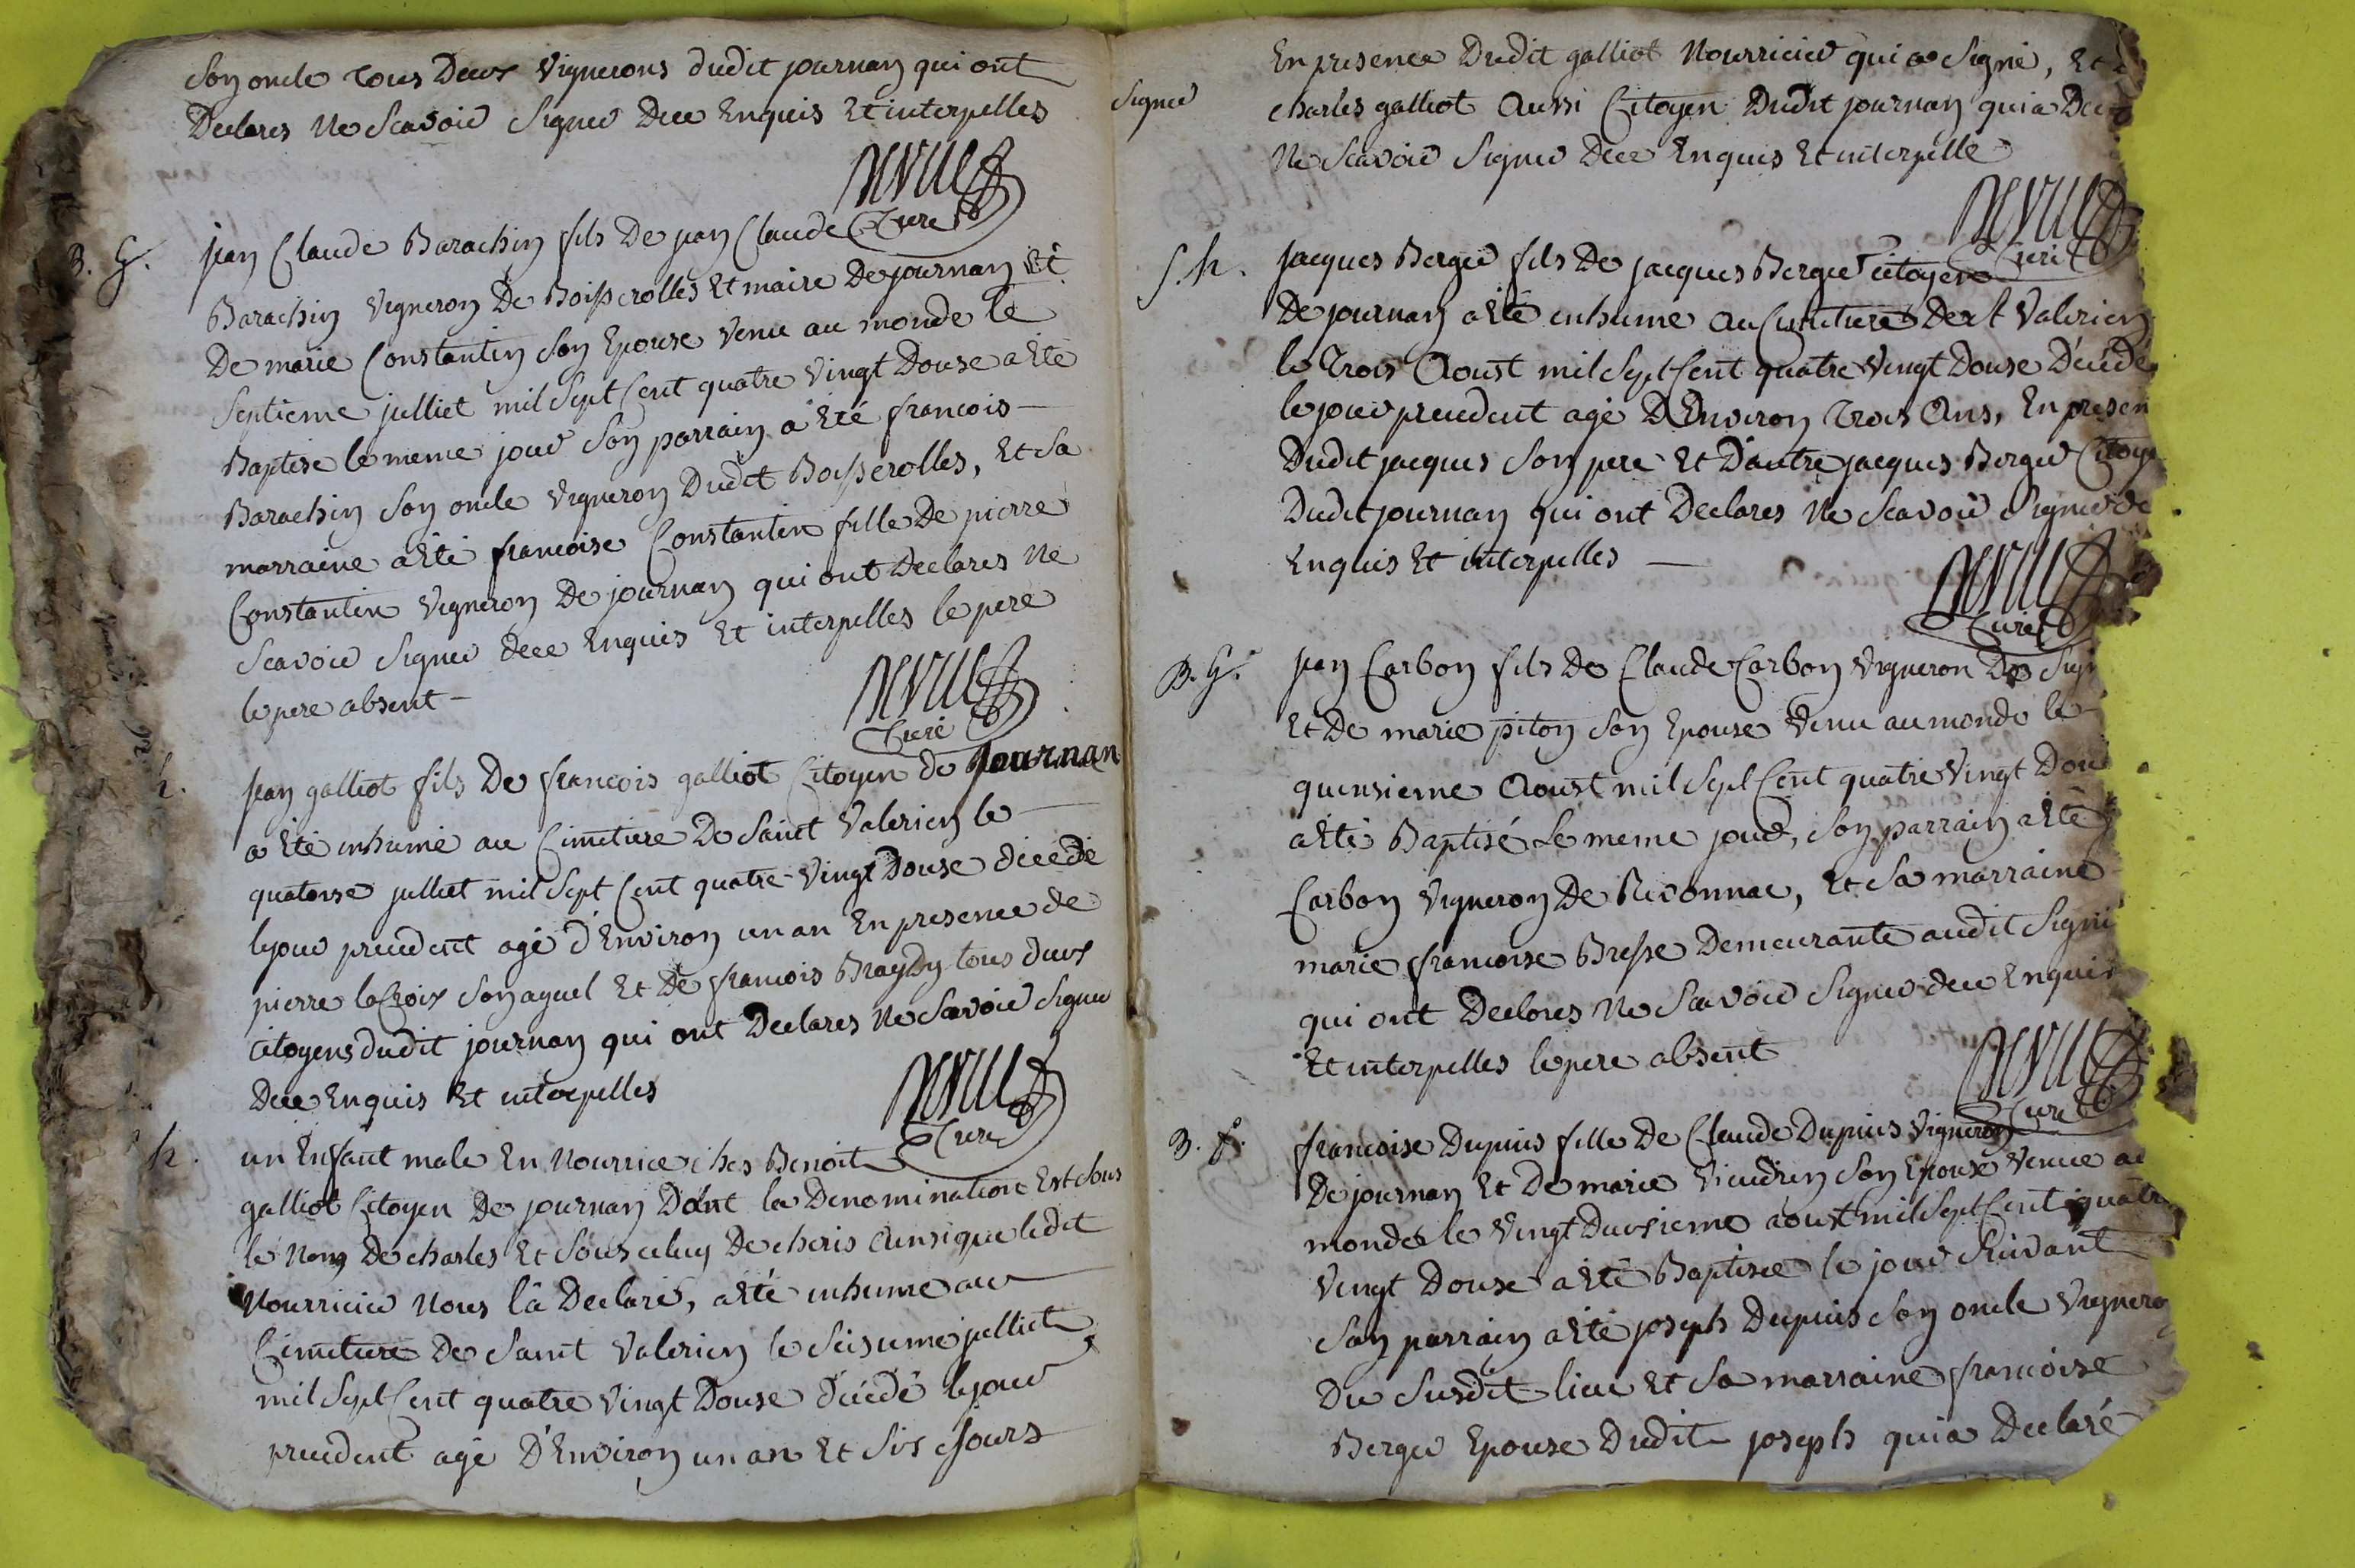 Son oncle tous Deux Vignerons dudit journan qui ont
Declares Ne Scavoir Signer Dece Enquis Et interpelles
curé
B. G.
jean Claude Barachin fils De jean Claude
Barachin Vigneron De Boisserolles Et maire De journan Et
De marie Constantin Son Epouse Venu au monde le
Septieme julliet mil Sept Cent quatre Vingt Douse a Eté
Baptise le meme jour Son parrain a Eté francois
Barachin Son oncle Vigneron Dudit Boisserolles, Et Sa
marraine a Eté francoise Constantin fille De pierre
Constantin Vigneron De journan qui ont Declares Ne
Scavoir Signer Dece Enquis Et interpelles le pere
le pere absent
curé
h.
jean galliot fils De francois galliot Citoyen de Journan
a Eté inhumé au Cimetiere De Saint Valerien le
quatorse julliet mil Sept Cent quatre Vingt Douse décedé
le jour precedent agé d'Environ un an En presence de
pierre laCroix Son ayuel Et De francois tous deux
Citoyens dudit journan qui ont Declares Ne Savoir Signer
Dece Enquis Et interpelles
Curé
h.
un Enfant male En Nourrice ches Benoit
galliot Citoyen De journan Dont la Denomination Est Sous
le Nom De charles Et Sous celuy De cheris ainsi que ledit
Nourricier Nous la Declaré, a Eté inhume au
Cimetiere De Saint Valerien le Seisieme julliet
mil Sept Cent quatre Vingt Douse décedé le jour
precedent agé D'Environ un an Et Six Jours
En presence Dudit galliot Nourricier qui a Signé, Et
Signer
charles galliot Aussi Citoyen Dudit journan qui a
Ne Scavoir Signer Dece Enquis Et interpelle
Curé
S. h.
jacques Berger fils De jacques Berger Citoyen
De journan a Eté inhume au Cimetiere De st Valerien
le Trois Aoust mil Sept Cent quatre Vingt Douse Décedé
le jour precedent agé D'Environ Trois Ans, En presen
Dudit jacques Son pere Et D'autre jacques Berger Citoye
Dudit journan qui ont Declares Ne Scavoir Signer de
Enquis Et interpelles
Curé
B. G.
jean Carbon fils De Claude Carbon Vigneron De
Et De marie piton Son Epouse Venu au monde le
quinsieme Aoust mil Sept Cent quatre Vingt Dou
a Eté Baptisé Le meme jour, Son parrain a Eté
Carbon Vigneron De Revonnac, Et Sa marraine
marie francoise Bresse Demeurante audit Signi
qui ont Declares Ne Scavoir Signer dece Enquis
Et interpelles le pere absent
Curé
B. f.
francoise Dupuis fille De Claude Dupuis Vigneron
De journan Et De marie Vieudrin Son Epouse Venue au
monde le Vingt Deusieme aoust mil Sept Cent quatre
Vingt Douse a Eté Baptisee le jour Suivant
Son parrain a Eté joseph Dupuis Son oncle Vigneron
Du Susdit lieu Et Sa marraine francoise
Berger Epouse Dudit joseph qui a Declaré